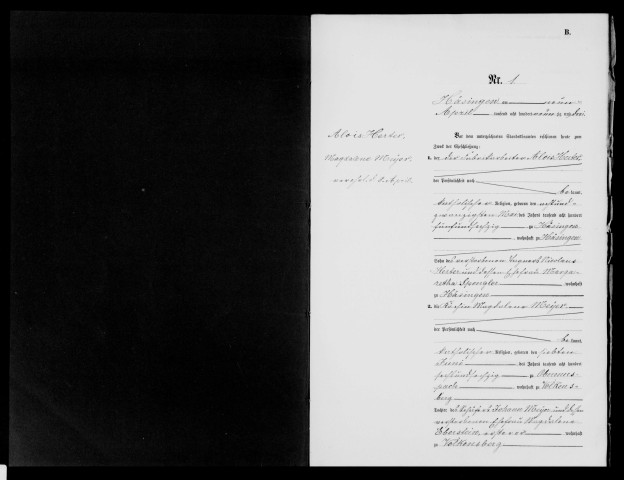 B.
Nr. 1
Häsingen am neunten
April tausend acht hundert neunzig und drei.
Alois Herter.
Magdalena Meyer.
Vor dem unterzeichneten Standesbeamten erschienen heute zum
Zweck der Eheschließung:
1. der Fabrikarbeiter Alois Herter
der Persönlichkeit nach
be kannt,
katholischer Religion, geboren den
zwanzigsten Mai des Jahres tausend acht hundert
fünfundsechzig zu Häsingen
, wohnhaft zu Häsingen
Sohn des verstorbenen Nicolaus
Herter und dessen Ehefrau Marga-
retha Spengler wohnhaft
zu Häsingen
2. die Magdalena Meyer
der Persönlichkeit nach
be kannt,
katholischer Religion, geboren den siebten
Juni des Jahres tausend acht hundert
sechsundsechzig zu
wohnhaft zu Volkens-
berg
Tochter des Johann Meyer und dessen
verstorbenen Ehefrau Magdalena
Eberstein, ersterer wohnhaft
zu Volkensberg